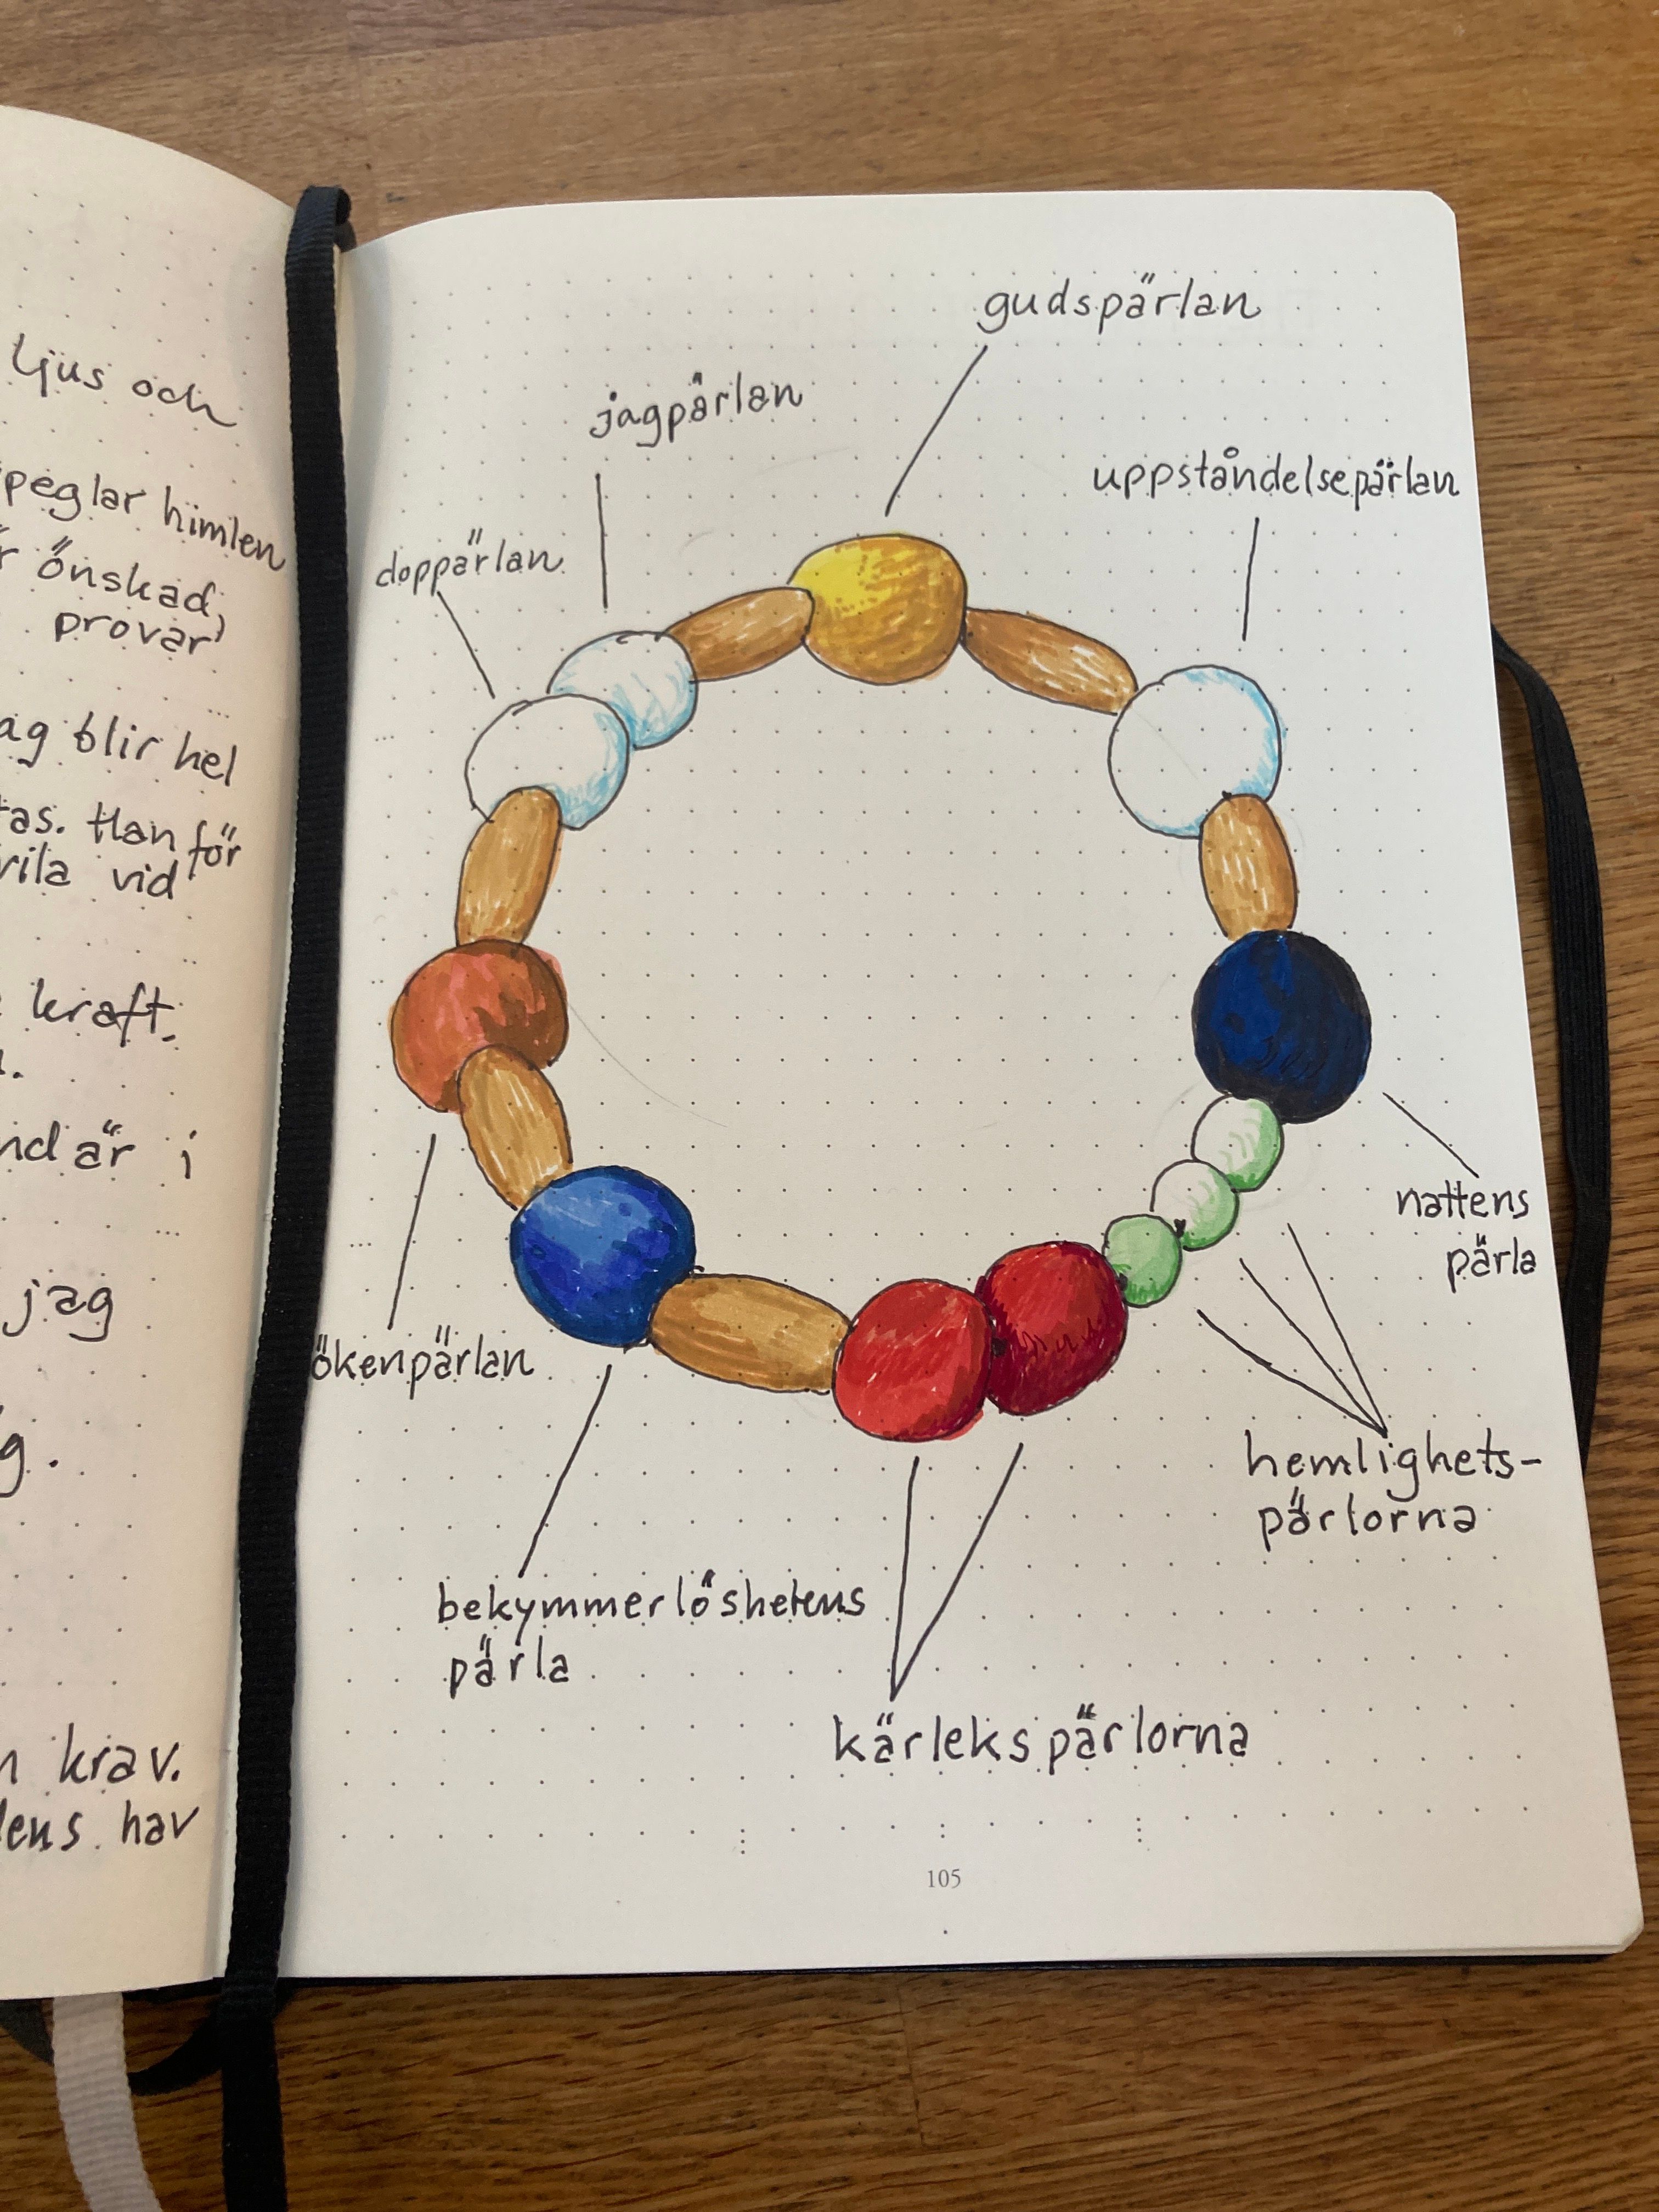 ljus och
himlen
önskad,
provar
blir hel
Han för
vid
kraft.
är i
jag
krav.
hav
gudspärlan
jagpärlan
uppståndelsepärlan
doppärlan
nattens
pärla
ökenpärlan
hemlighets-
pärlorna
bekymmerlöshetens
pärla
kärlekspärlorna
105